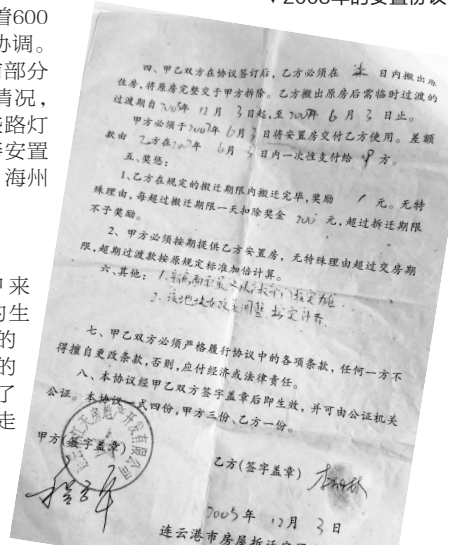 2005年的安置协议
着600
协调。
部分
情况，
路灯
安置
海州
来
的生
的
的
了
走
四、甲乙双方在协议签订后，乙方必须在 日内搬出
住房，将原房完整交于甲方拆除。乙方搬出原房后需临时过渡的
过渡期自2005年 12 月 3 日起，至2007年 6 月 3 日止。
甲方必须于2007年 6 月 3 日将安置房交付乙方使用。差额
款由 乙方在2007年 6 月 3 日内一次性支付给 甲 方。
五、奖惩：
1、乙方在规定的搬迁期限内搬迁完毕，奖励 / 元。无特
殊理由，每超过搬迁期限一天扣除奖金 200 元，超过拆迁期限
不予奖励。
2、甲方必须按期提供乙方安置房，无特殊理由超过交房期
限，超期过渡款按原规定标准加倍计算。
六、其他：1.
2.
七、甲乙双方必须严格履行协议中的各项条款，任何一方不
得擅自更改条款，否则，应付经济或法律责任。
八、本协议经甲乙双方签字盖章后即生效，并可由公证机关
公证。本协议一式四份，甲方三份、乙方一份。
甲方(签字盖章)
乙方(签字盖章)
2005年 12月 3 日
连云港市房屋拆迁